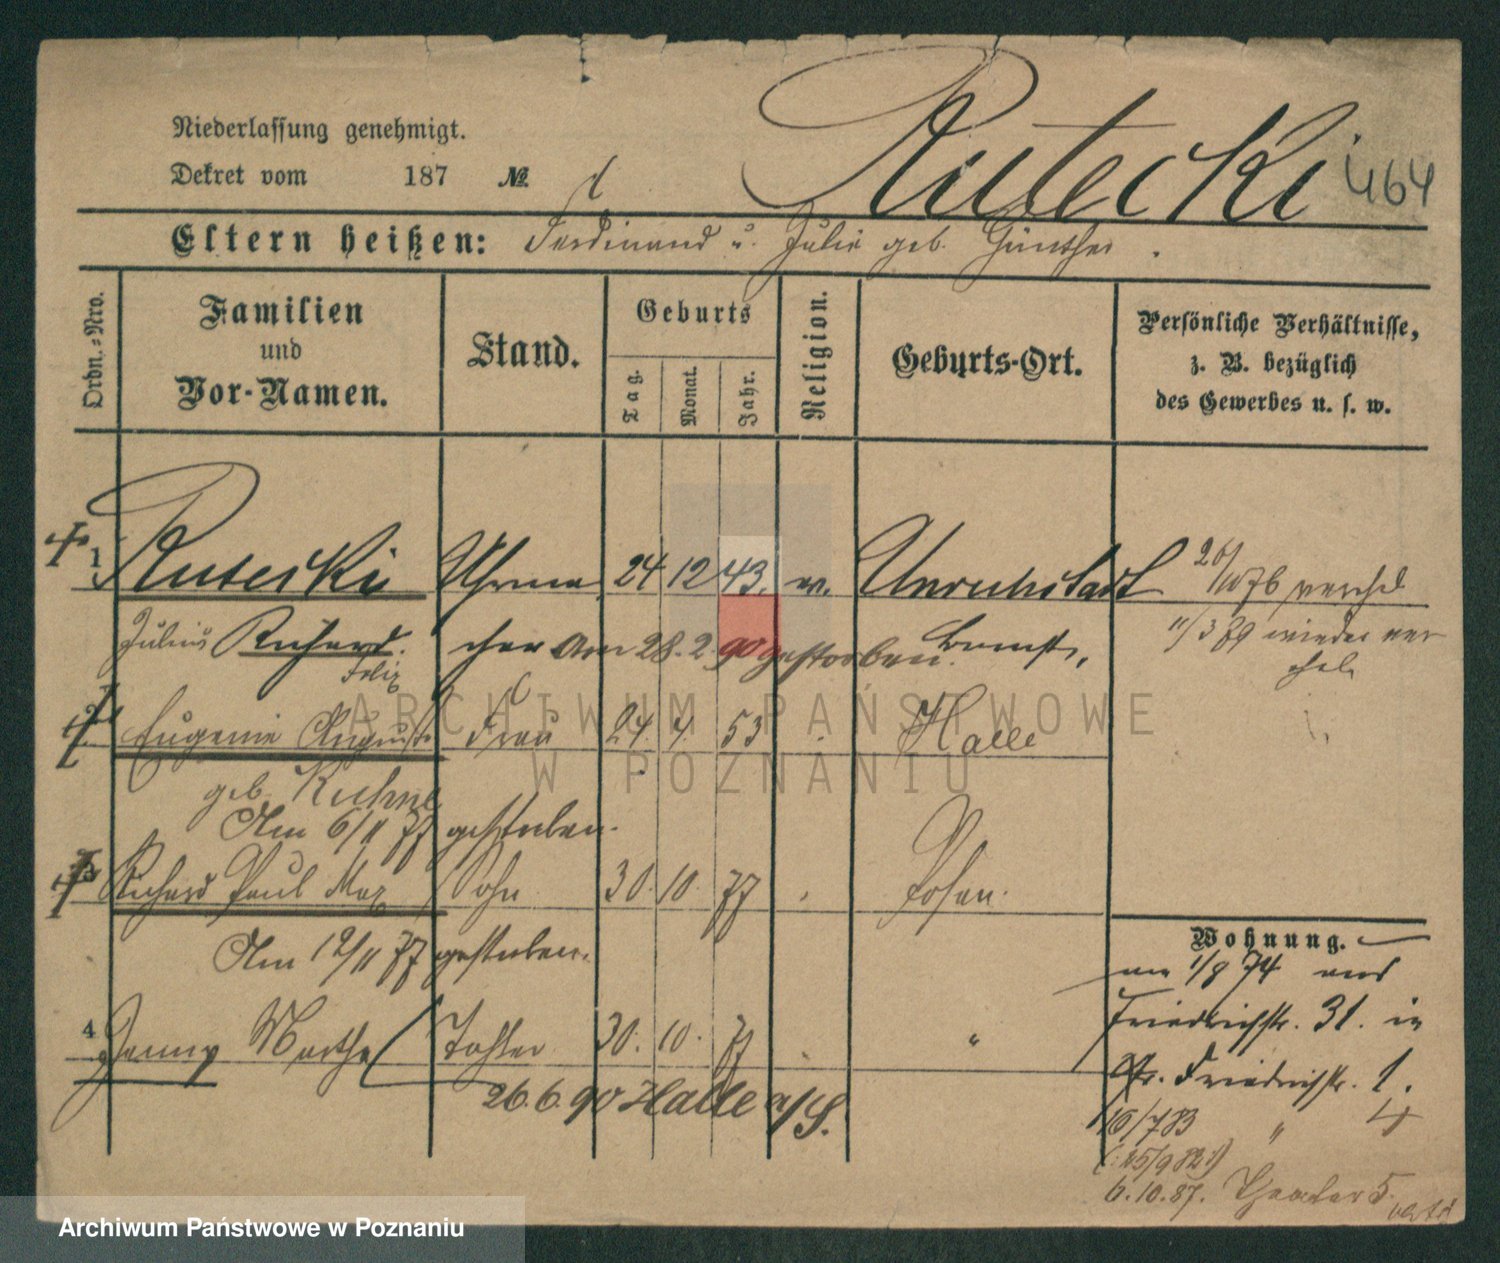 Niederlassung genehmigt.
Dekret vom 187 №
Rutecki 464
Eltern heißen: Ferdinand u. Julie geb. Günther.
Ordn.-Nro.
Familien und Vor-Namen.
Stand.
Geburts
Tag.
Monat.
Jahr.
Religion.
Geburts-Ort.
Persönliche Verhältnisse,
z. B. bezüglich
des Gewerbes u. s. w.
1 Rutecki Uhrma 24 12 43. ev. Unruhstadt
Julius Richard cher am 28. 2. 90 gestorben. Bomst,
Felix
11/3 89 wieder ver
ehel.
2 Eugenie Auguste Frau 24. 4. 53 Halle
ARCHIWUM PAŃSTWOWE
W POZNANIU
geb. Kuhne
Am 6/11 77 gestorben.
3 Richard Paul Max Sohn 30. 10. 77 Posen.
Am 12/11 77 gestorben.
Wohnung.
1/8 74
Friedrichstr. 31. in
4 Jenny Marthe Tochter 30. 10. 77 "
Friedrichstr. 1.
26. 6. 90 Halle a/S.
10/7 83 " 4
(: 25/9 82 :)
6. 10. 87. Theater 5.
Archiwum Państwowe w Poznaniu